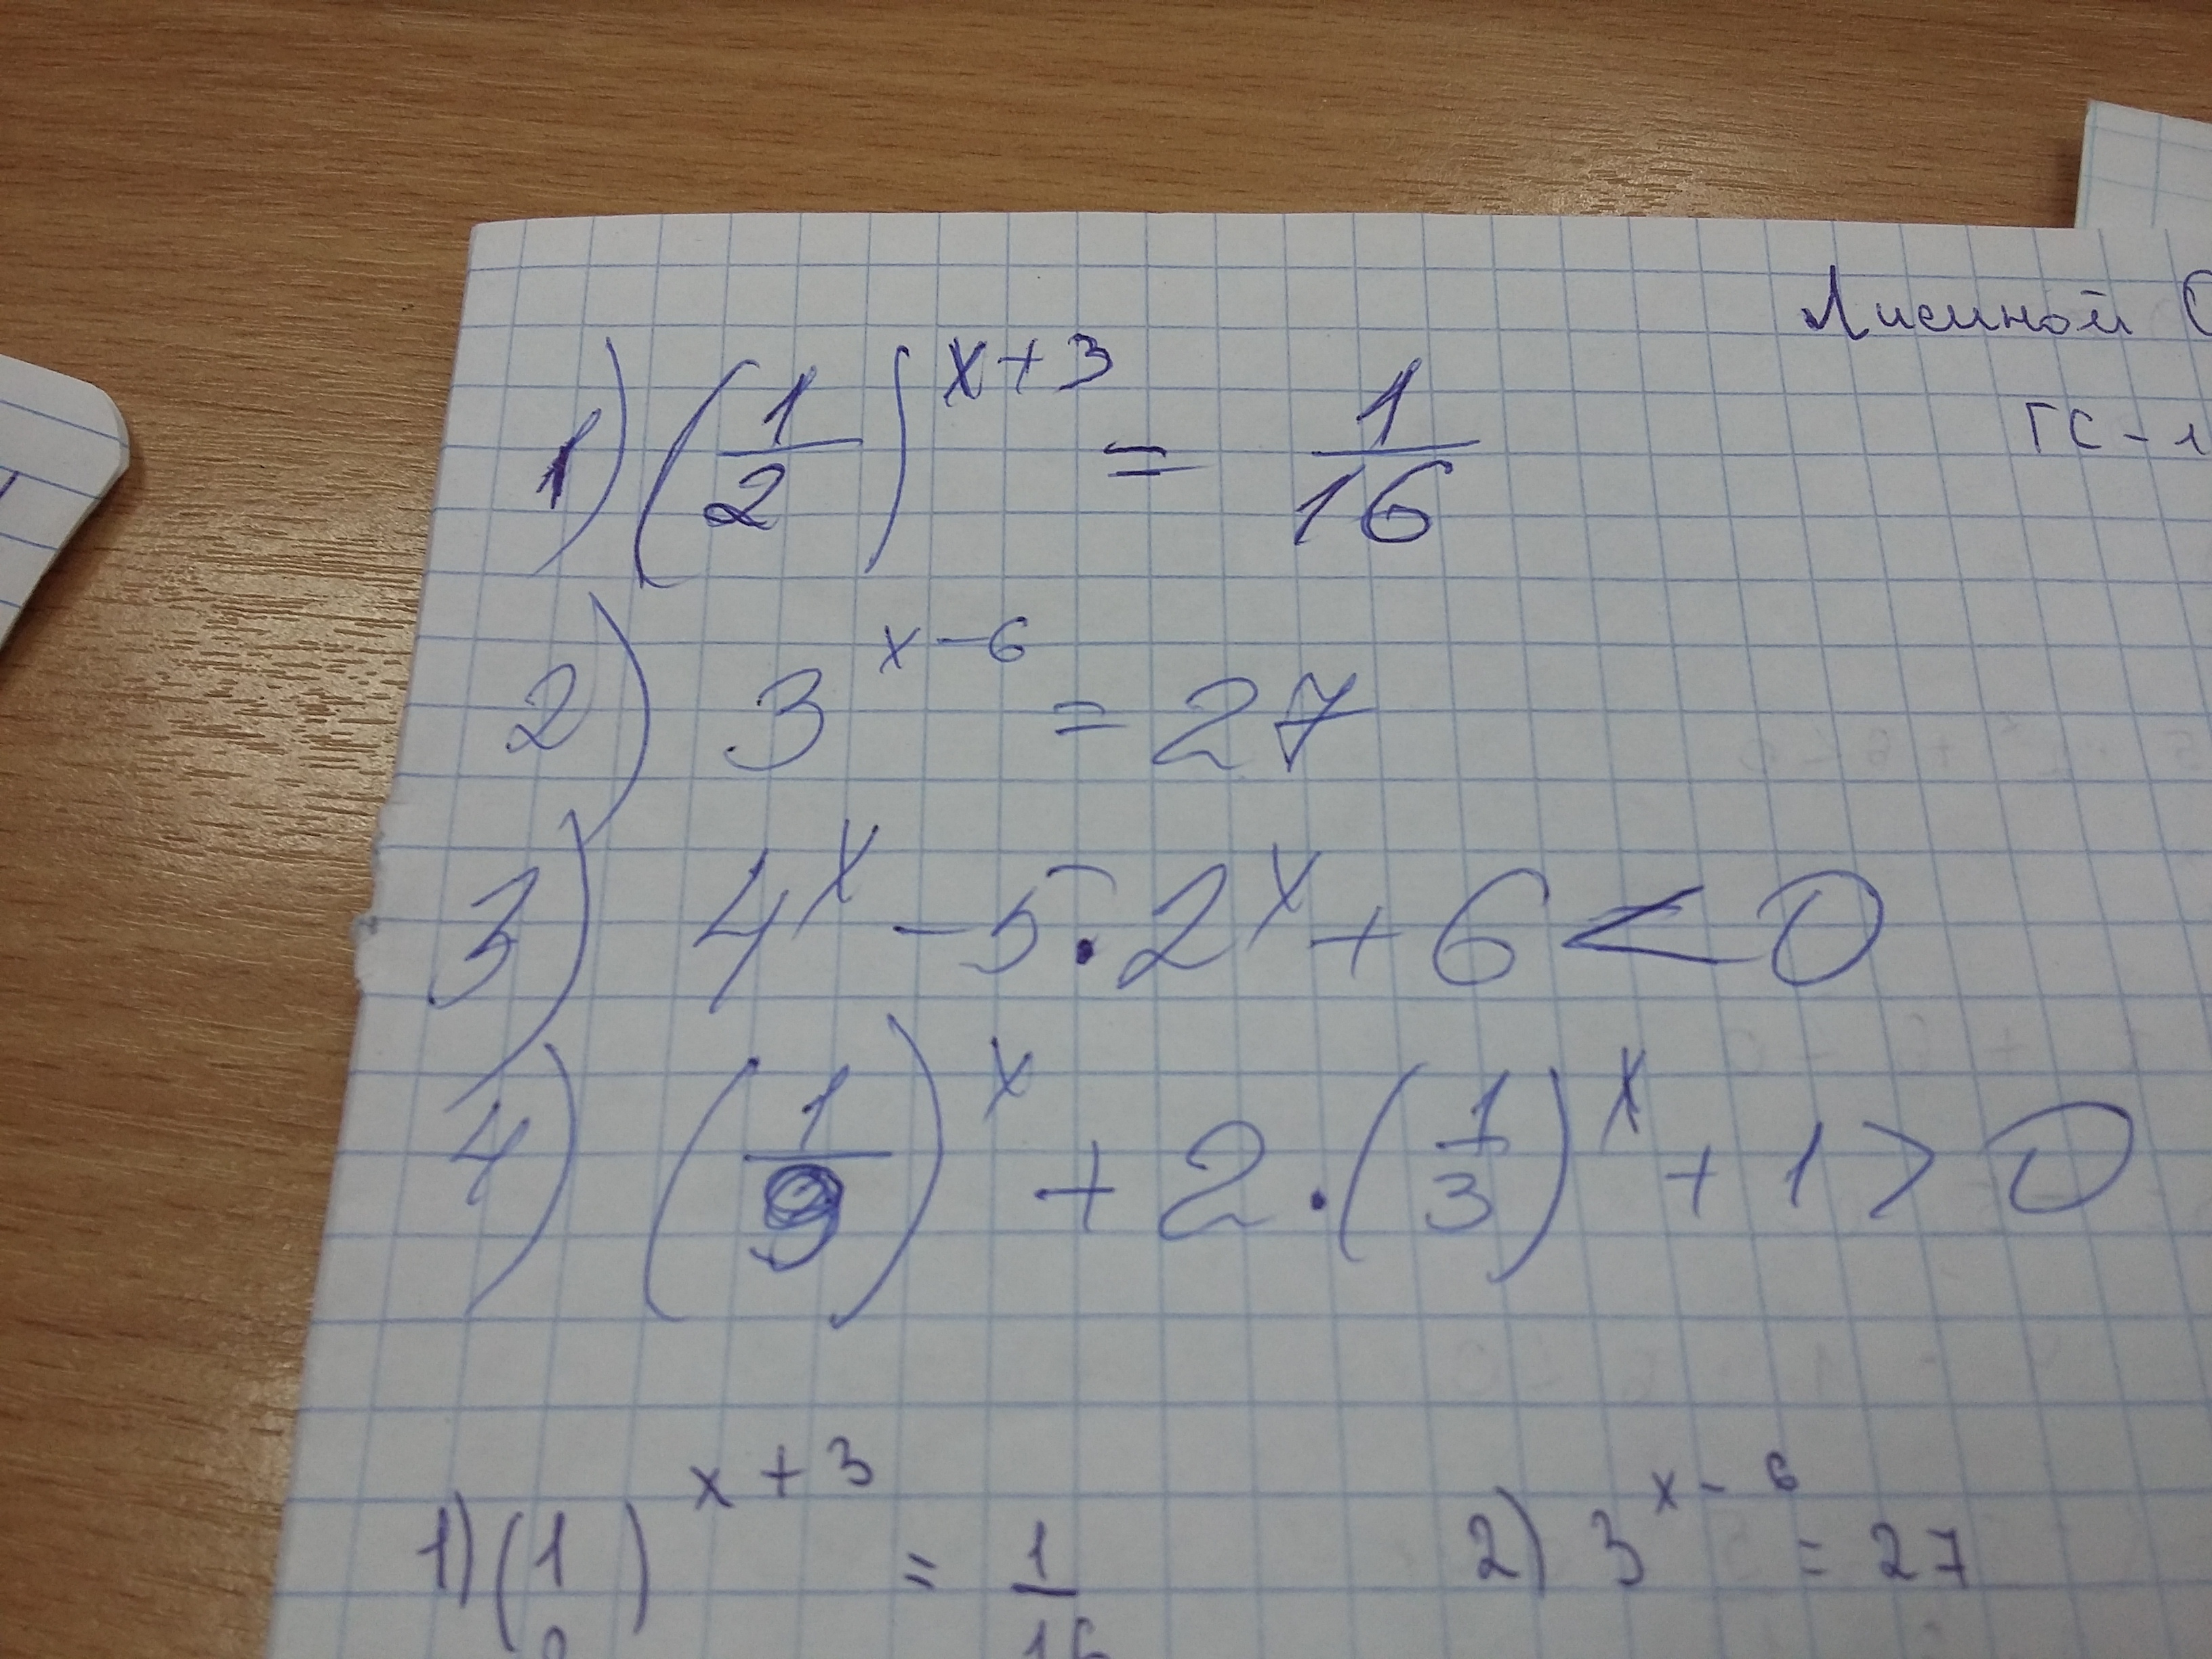 Лисиной
ГС-1
1) (1/2)^(x+3) = 1/16
2) 3^(x-6) = 27
3) 4^x - 5 · 2^x + 6 < 0
4) (1/9)^x + 2 · (1/3)^x + 1 > 0
1) (1/2)^(x+3) = 1/16 2) 3^(x-6) = 27